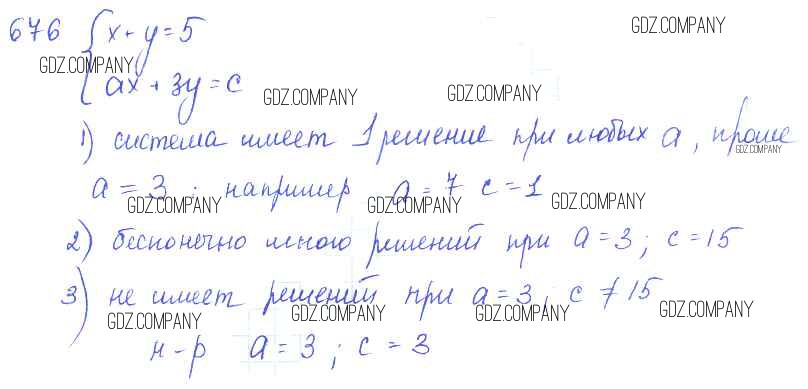 676 { x + y = 5
GDZ.COMPANY
GDZ.COMPANY
ax + 3y = c
GDZ.COMPANY
GDZ.COMPANY
1) система имеет 1 решение при любых a, кроме
GDZ.COMPANY
a = 3 ; например a = 7 c = 1
GDZ.COMPANY
GDZ.COMPANY
GDZ.COMPANY
2) бесконечно много решений при a = 3 ; c = 15
3) не имеет решений при a = 3 ; c ≠ 15
GDZ.COMPANY
GDZ.COMPANY
GDZ.COMPANY
GDZ.COMPANY
н-р a = 3 ; c = 3